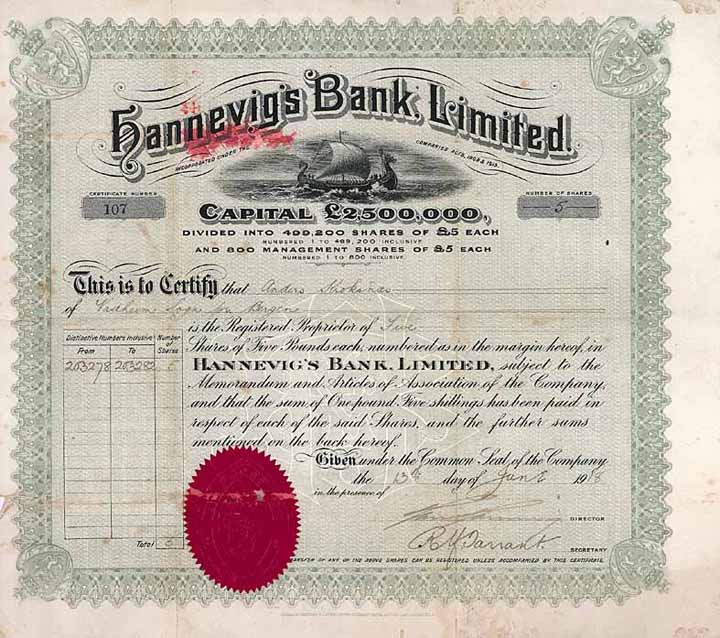 Hannevig's Bank, Limited.
INCORPORATED UNDER THE COMPANIES ACTS, 1908 & 1913.
CERTIFICATE NUMBER
107
NUMBER OF SHARES
5
CAPITAL £2500,000,
DIVIDED INTO 499,200 SHARES OF £5 EACH
NUMBERED 1 TO 499,200 INCLUSIVE
AND 800 MANAGEMENT SHARES OF £5 EACH
NUMBERED 1 TO 800 INCLUSIVE.
This is to Certify that Anders
of Sogn Bergen
is the Registered Proprietor of Five
Shares of Five Pounds each, numbered as in the margin hereof, in
HANNEVIG'S BANK, LIMITED, subject to the
Memorandum and Articles of Association of the Company,
and that the sum of One pound Five shillings has been paid in
respect of each of the said Shares, and the further sums
mentioned on the back hereof.
Distinctive Numbers Inclusive
Number of Shares
From To
203278 203282 5
Total 5
Given under the Common Seal of the Company
the 13th day of June 1918
in the presence of
DIRECTOR
SECRETARY
TRANSFER OF ANY OF THE ABOVE SHARES CAN BE REGISTERED UNLESS ACCOMPANIED BY THIS CERTIFICATE